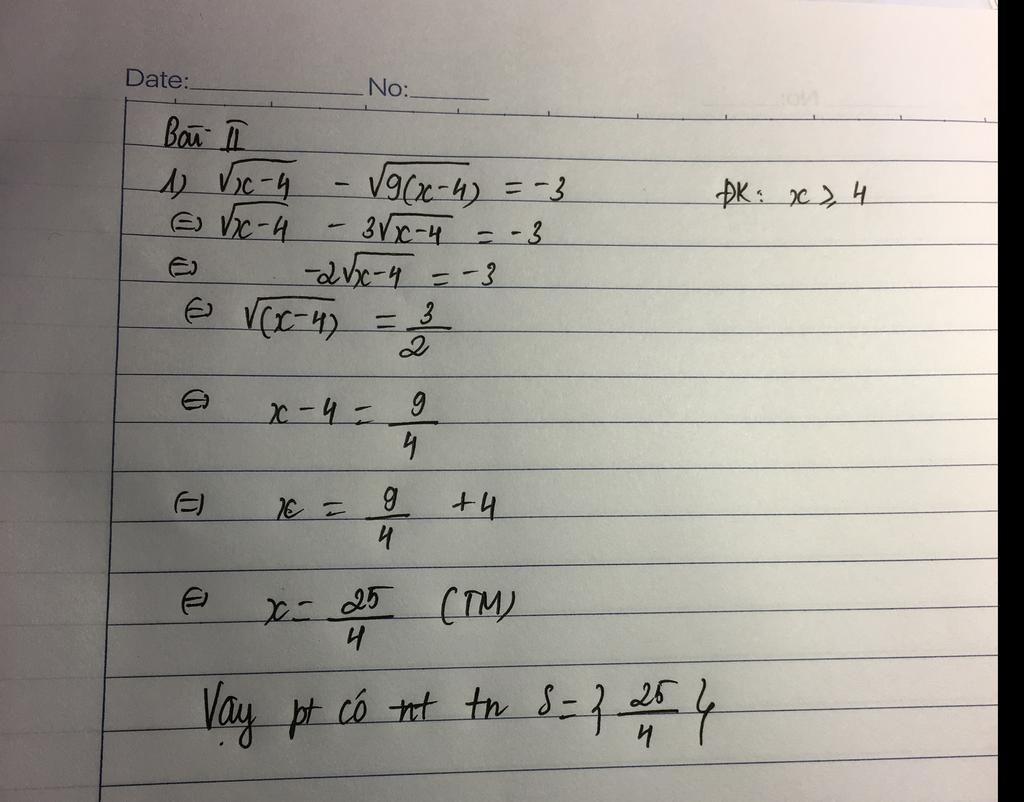 Date: No:
Bài II
1) √(x-4) - √(9(x-4)) = -3 ĐK: x ≥ 4
⇔ √(x-4) - 3√(x-4) = -3
⇔ -2√(x-4) = -3
⇔ √(x-4) = 3/2
⇔ x-4 = 9/4
⇔ x = 9/4 +4
⇔ x = 25/4 (TM)
Vậy pt có tn S = { 25/4 }